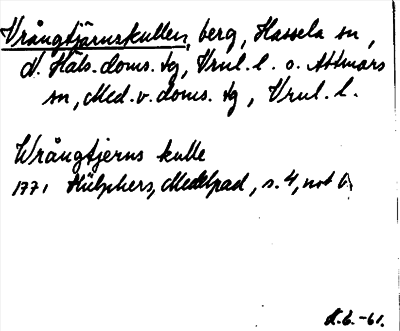 Vrångtjärnskullen, berg, Hassela sn,
N. Häls. doms. tg, Vrul. l. o. Attmars
sn, Med. v. doms. tg, Vrul. l.
Wrångtjerns kulle
1771 Hülphers, Medelpad, s. 4, not
-61.